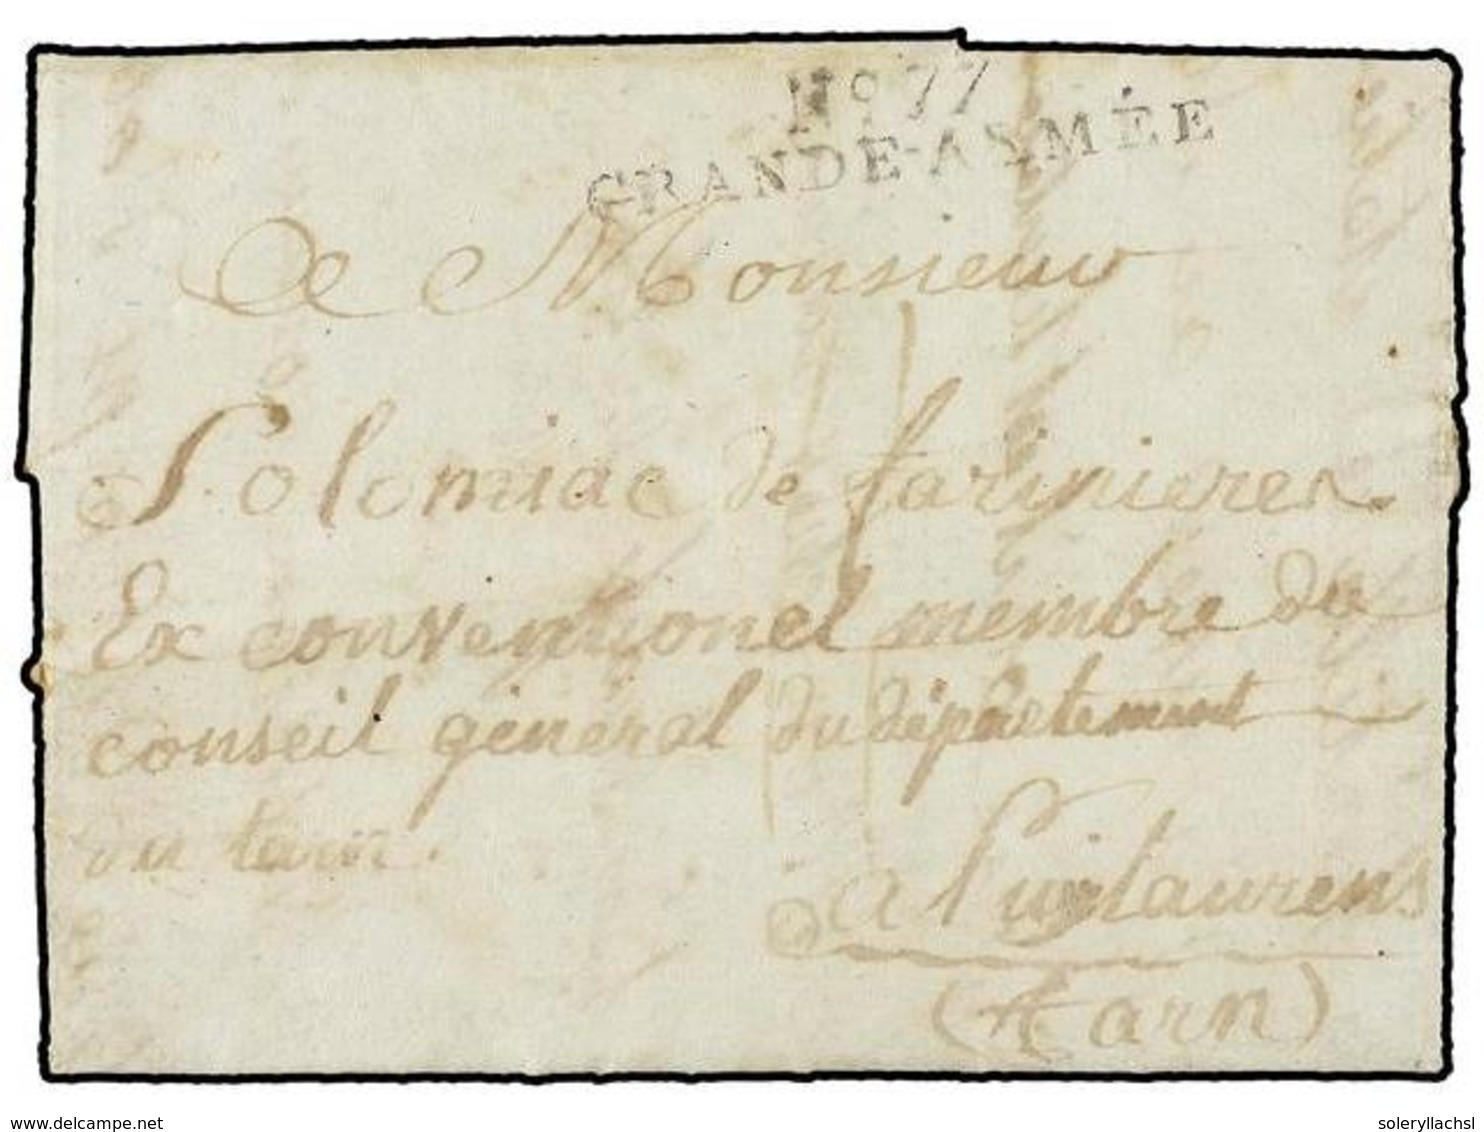 No 77
GRANDE-ARMÉE
A Monsieur
Solomiac de farinieres
Ex conventionel membre du
conseil général du département
du tarn.
a Puylaurens
(tarn)
© www.delcampe.net
soleryllachsl